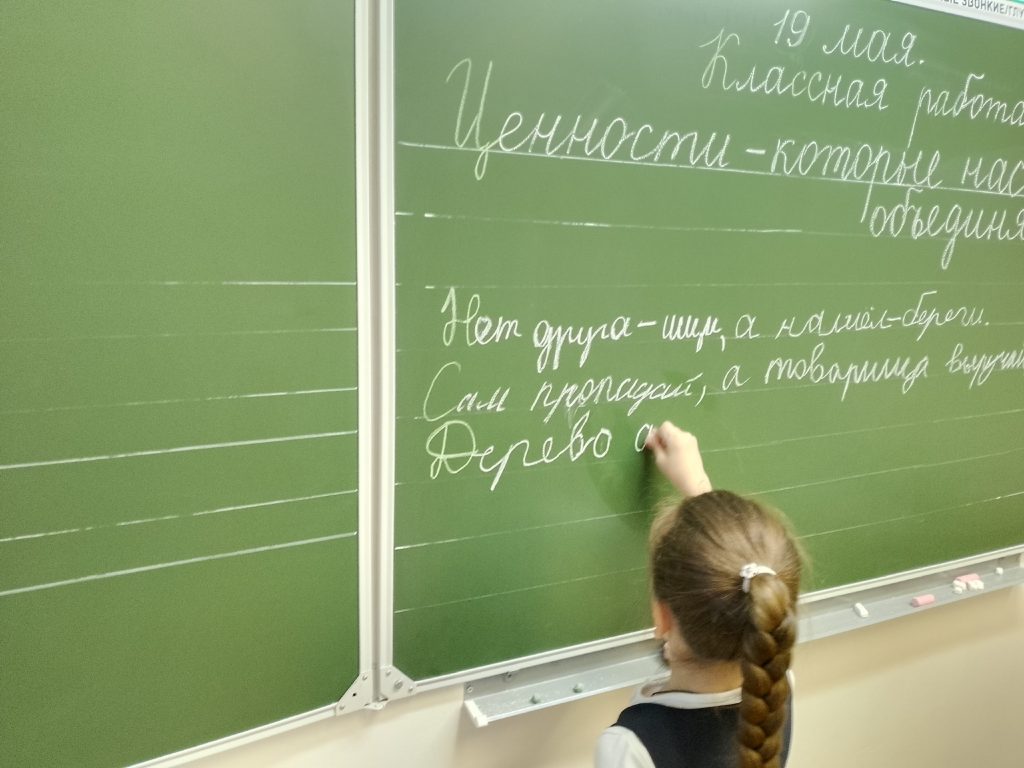 ЗВОНКИЕ/ГЛУ
19 мая.
Классная работа
Ценности - которые нас
объединя
Нет друга - ищи, а нашёл - береги.
Сам пропадай, а товарища выручай
Дерево